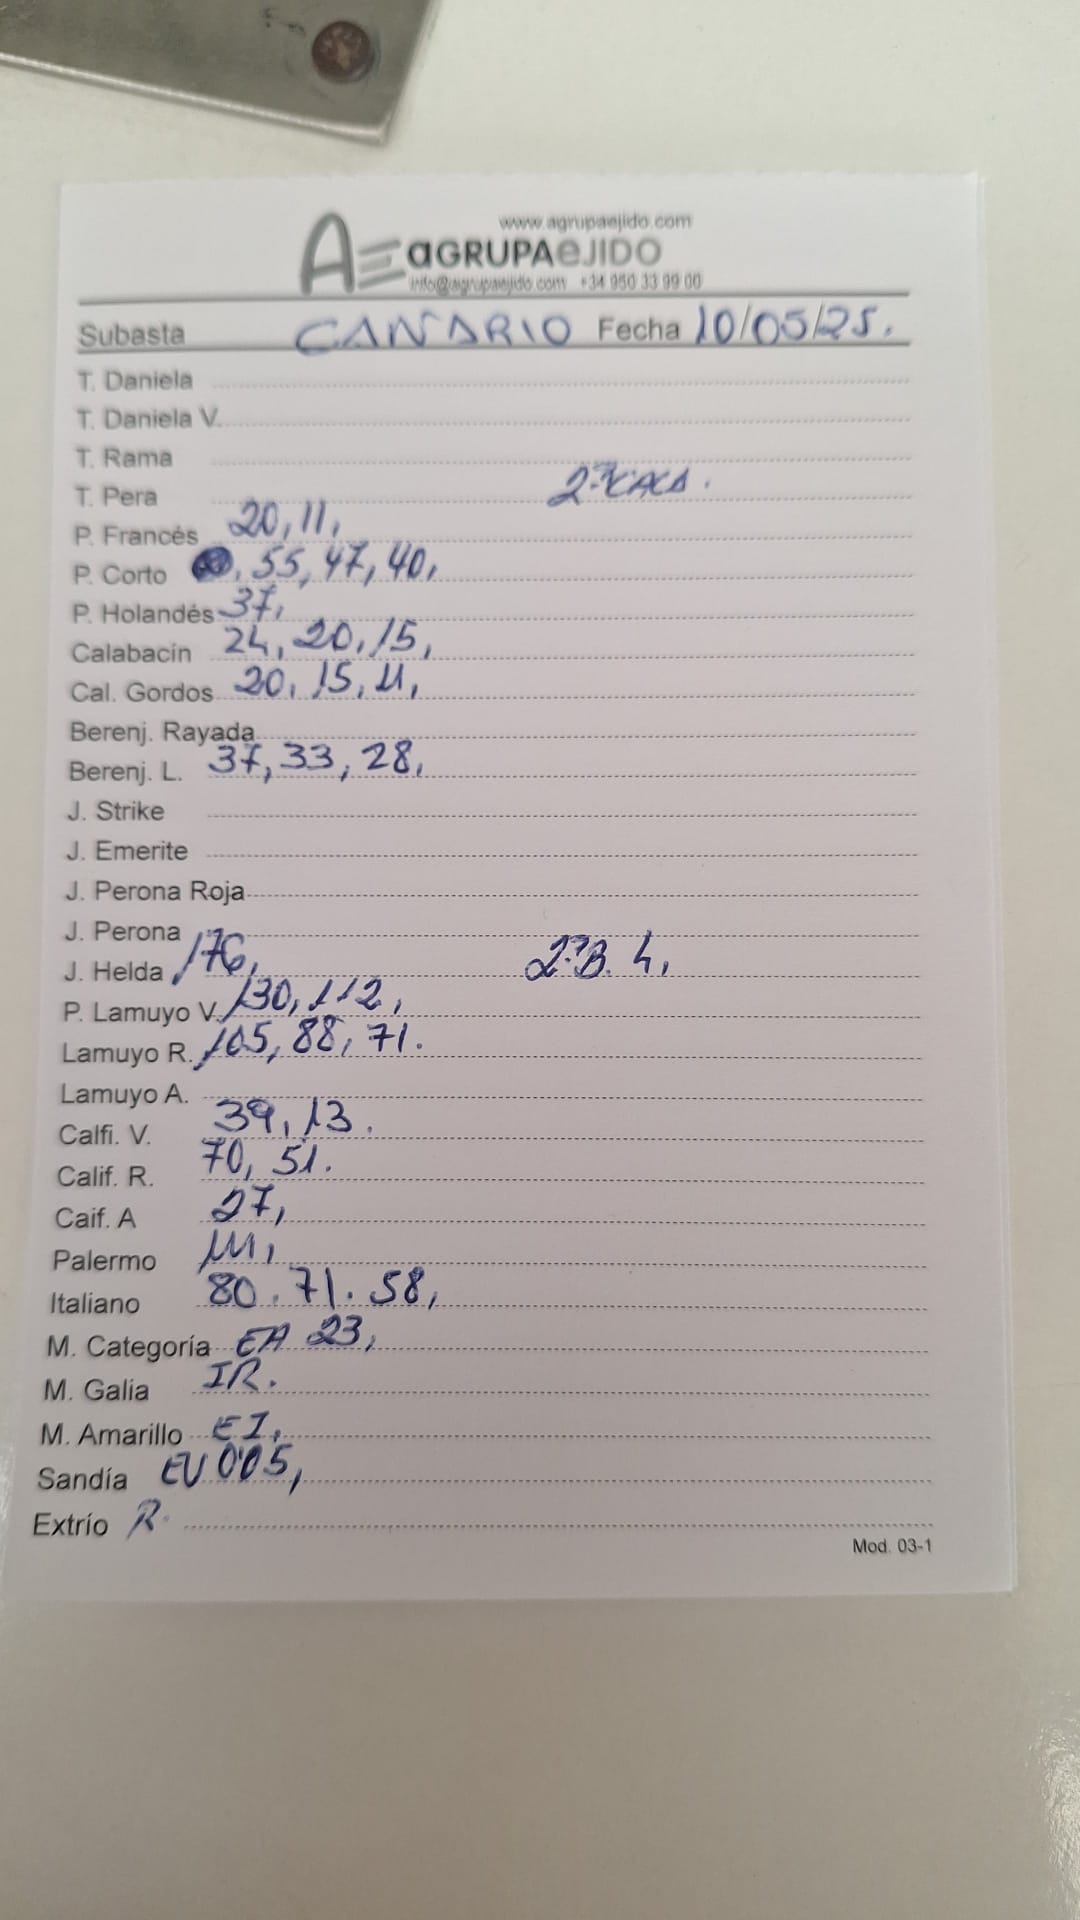 www.agrupaejido.com
AE aGRUPAeJIDO
info@agrupaejido.com +34 950 33 99 00
Subasta CANARIO Fecha 10/05/25.
T. Daniela
T. Daniela V.
T. Rama
T. Pera
P. Francés 20, 11,
P. Corto , 55, 47, 40,
P. Holandés 37,
Calabacín 24, 20, 15,
Cal. Gordos 20, 15, 11,
Berenj. Rayada
Berenj. L. 37, 33, 28,
J. Strike
J. Emerite
J. Perona Roja
J. Perona
J. Helda 176, 2ªB. 4,
P. Lamuyo V. 130, 112,
Lamuyo R. 105, 88, 71.
Lamuyo A.
Calfi. V. 39, 13.
Calif. R. 70, 51.
Caif. A 27,
Palermo
Italiano 80. 71. 58,
M. Categoría EA 23,
M. Galia IR.
M. Amarillo EI,
Sandía EU 0'05,
Extrío R.
Mod. 03-1